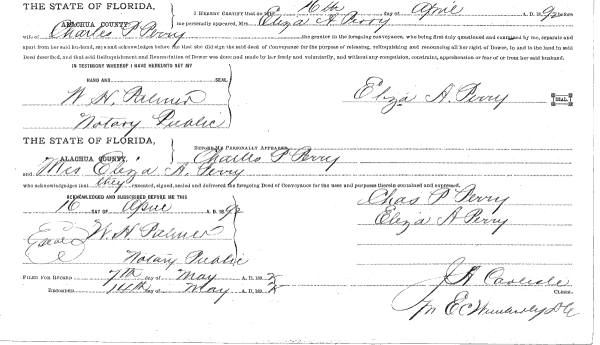 THE STATE OF FLORIDA,
ALACHUA COUNTY.
I HEREBY CERTIFY that on this 16th day of April 1892 before
me personally appeared, Mrs. Eliza A. Perry
wife of Charles P Perry the grantor in the foregoing conveyance, who being first duly questioned and examined by me, separate and
apart from her said husband, says and acknowledges before me that she did sign the said deed of Conveyance for the purpose of releasing, relinquishing and renouncing all her right of Dower, in and to the land in said
Deed described, and that said Relinquishment and Renunciation of Dower was done and made by her freely and voluntarily, and without any compulsion, constraint, apprehension or fear of or from her said husband.
IN TESTIMONY WHEREOF I HAVE HEREUNTO SET MY
HAND AND SEAL.
W. H. Palmer
Notary Public
Eliza A. Perry SEAL.
THE STATE OF FLORIDA,
ALACHUA COUNTY.
BEFORE ME PERSONALLY APPEARED Charles P Perry
and Mrs Eliza A. Perry
who acknowledges that they executed, signed, sealed and delivered the foregoing Deed of Conveyance for the uses and purposes therein contained and expressed.
ACKNOWLEDGED AND SUBSCRIBED BEFORE ME THIS
16 DAY OF April A. D. 1892
Chas P Perry
Eliza A Perry
Seal W. H. Palmer
Notary Public
FILED FOR RECORD 7th day of May A. D. 1892
RECORDED 14th day of May A. D. 1892
J A Carlisle CLERK.
E C Wimberly D C